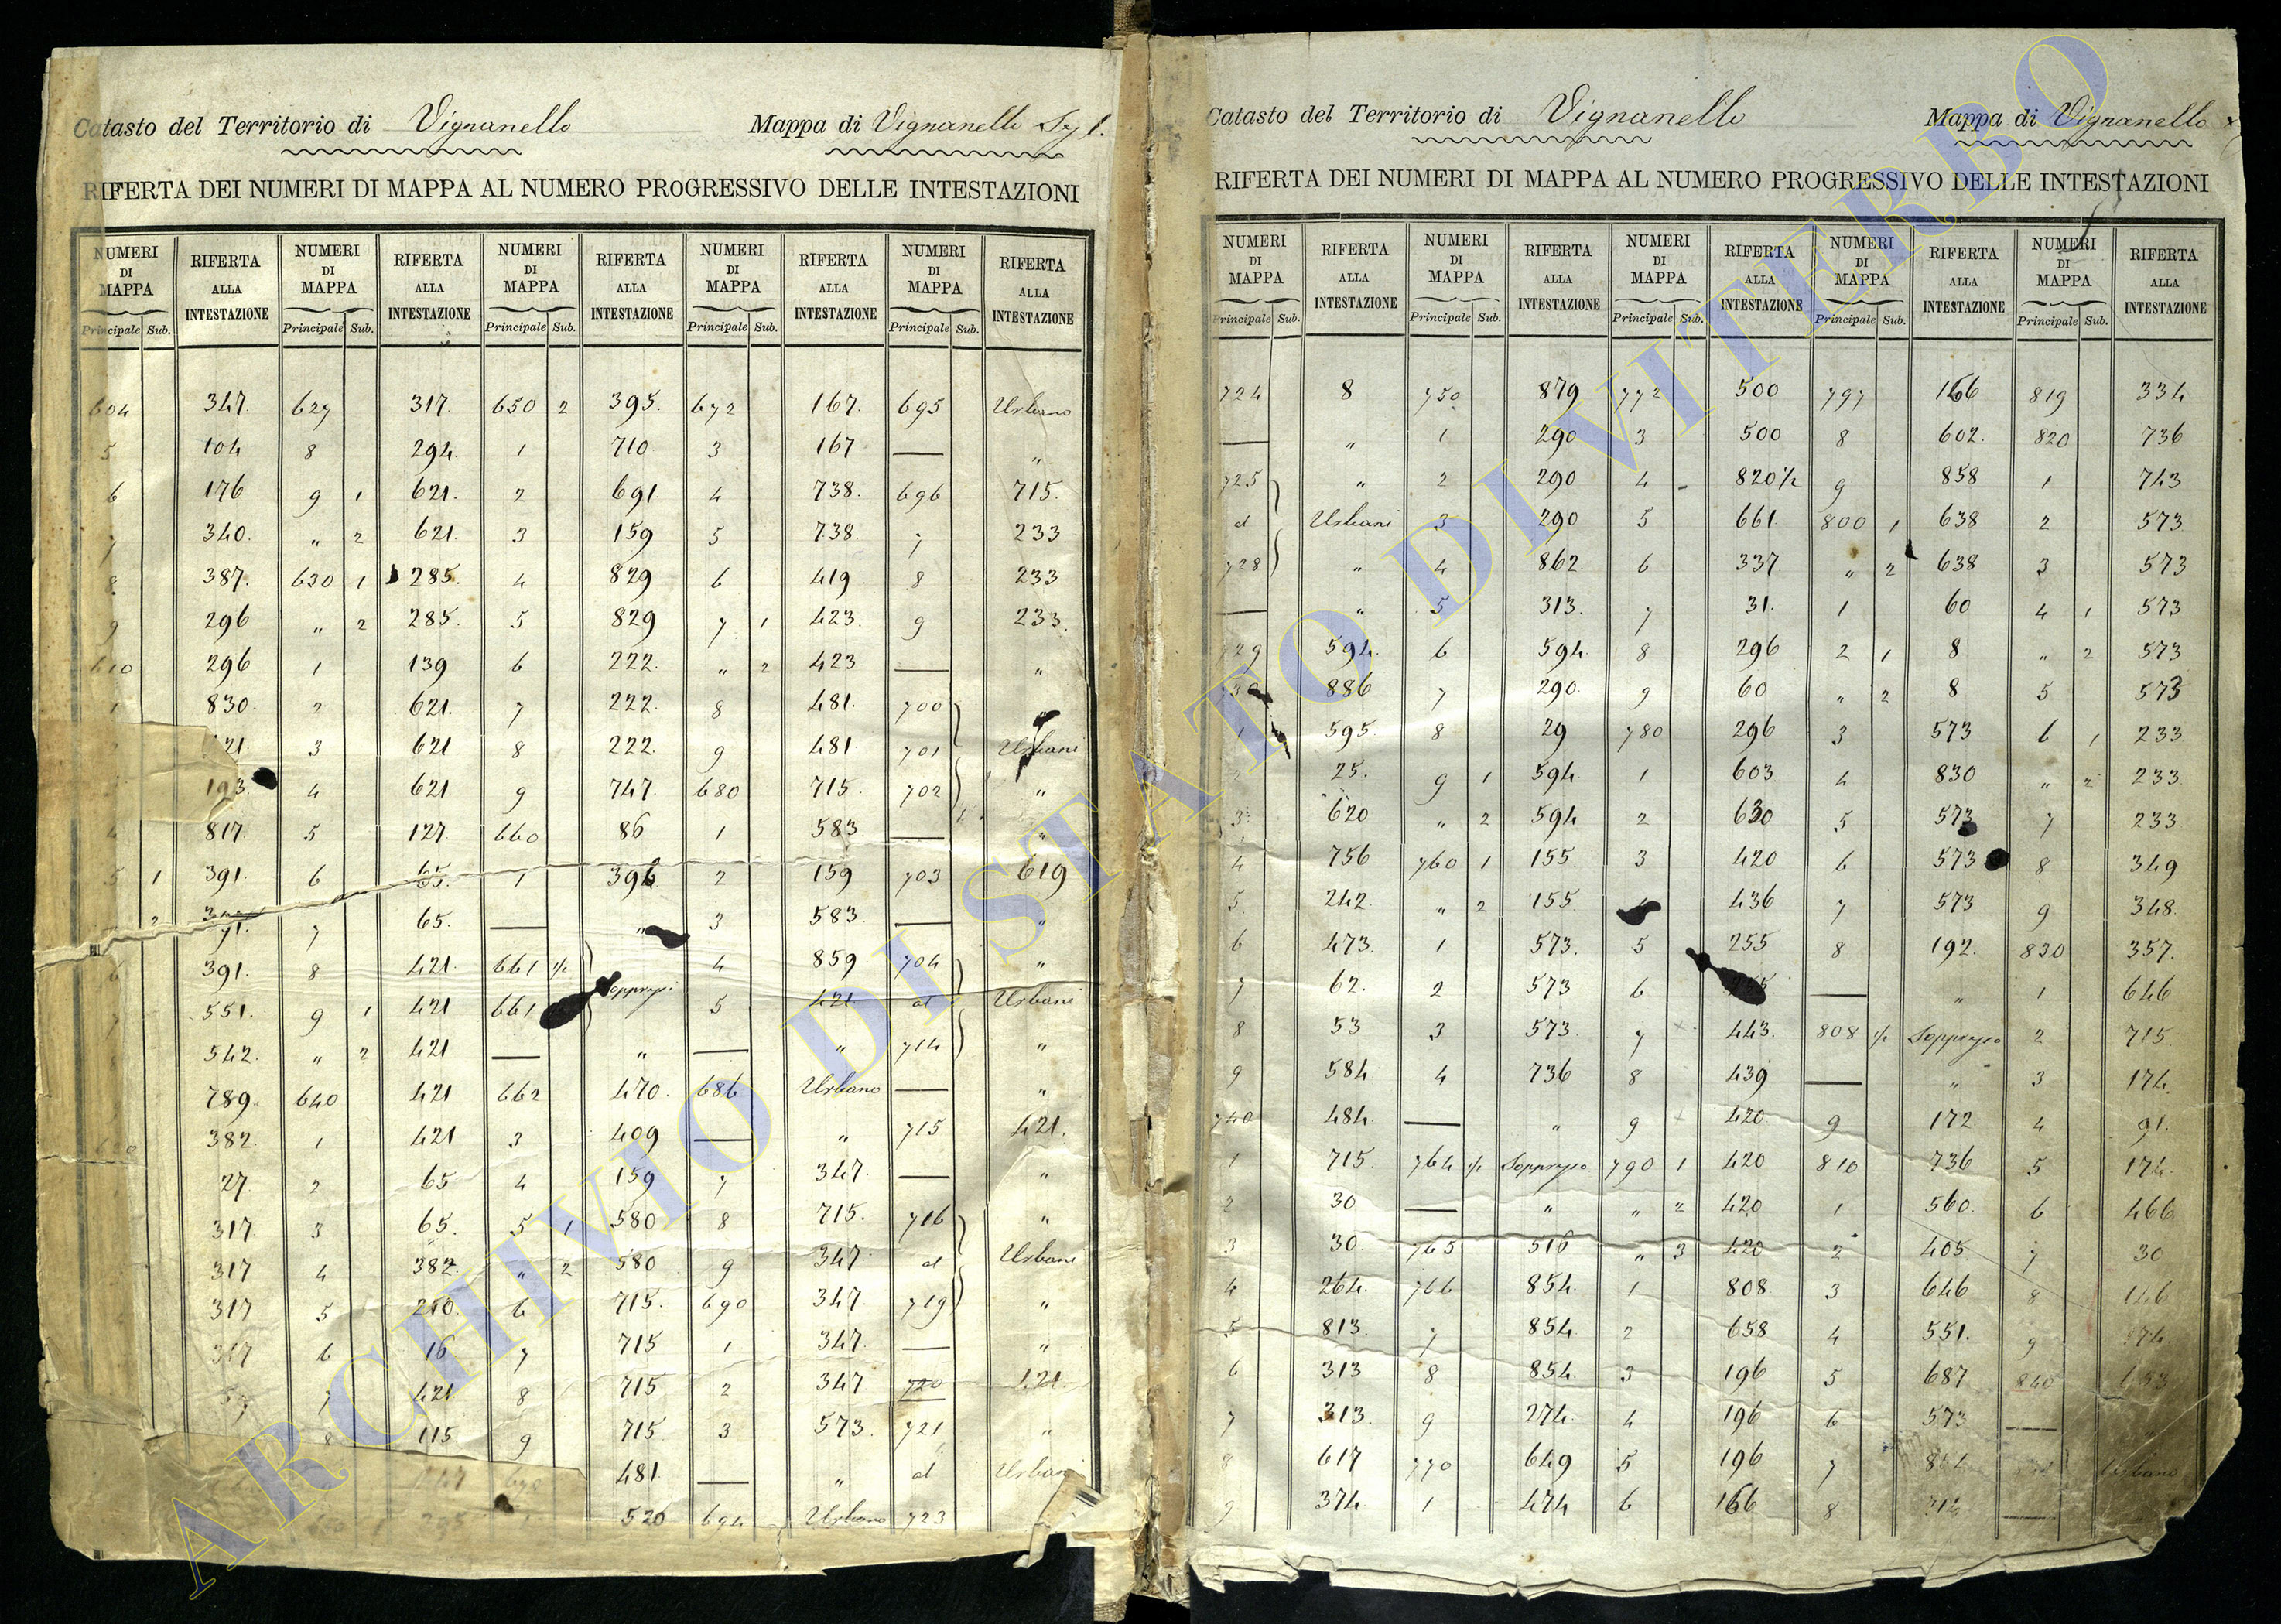 Catasto del Territorio di Vignanello Mappa di Vignanello
RIFERTA DEI NUMERI DI MAPPA AL NUMERO PROGRESSIVO DELLE INTESTAZIONI
NUMERI DI MAPPA RIFERTA ALLA INTESTAZIONE NUMERI DI MAPPA RIFERTA ALLA INTESTAZIONE NUMERI DI MAPPA RIFERTA ALLA INTESTAZIONE NUMERI DI MAPPA RIFERTA ALLA INTESTAZIONE NUMERI DI MAPPA RIFERTA ALLA INTESTAZIONE
Principale Sub. Principale Sub. Principale Sub. Principale Sub. Principale Sub.
604 347. 627 317. 650 2 395. 672 167. 695 Urbano
5 104 8 294. 1 710 3 167 — "
6 176 9 1 621. 2 691. 4 738. 696 715.
7 340. " 2 621. 3 159 5 738. 7 233.
8 387. 630 1 285. 4 829 6 419 8 233
9 296 " 2 285. 5 829 7 1 423. 9 233.
610 296 1 139 6 222. " 2 423 — "
1 830. 2 621. 7 222. 8 481. 700 "
3 621 8 222. 9 481 701 Urbani
193. 4 621. 9 747. 680 715. 702 "
4 817. 5 127. 660 86 1 583 — "
5 1 391. 6 65. 1 396. 2 159 703 619
2 91. 7 65. — " 3 583 — "
6 391. 8 421. 661 ½ 4 859 704 "
7 551. 9 1 421 661 5 421 al Urbani
542. " 2 421 — " — " 714 "
789. 640 421 662 470. 686 Urbano — "
620 382 1 421 3 409 — " 715 421.
27 2 65 4 159 7 347. — "
317 3 65. 5 1 580 8 715. 716 "
317 4 382. " 2 580 9 347. al Urbani
317 5 210. 6 715. 690 347. 719 "
317 6 16 7 715 1 347. — "
7 421 8 715 2 347 720 421.
8 115 9 715 3 573. 721 "
670 481. — " al Urbani
520 694 Urbano 723
Catasto del Territorio di Vignanello Mappa di Vignanello
RIFERTA DEI NUMERI DI MAPPA AL NUMERO PROGRESSIVO DELLE INTESTAZIONI
NUMERI DI MAPPA RIFERTA ALLA INTESTAZIONE NUMERI DI MAPPA RIFERTA ALLA INTESTAZIONE NUMERI DI MAPPA RIFERTA ALLA INTESTAZIONE NUMERI DI MAPPA RIFERTA ALLA INTESTAZIONE NUMERI DI MAPPA RIFERTA ALLA INTESTAZIONE
Principale Sub. Principale Sub. Principale Sub. Principale Sub. Principale Sub.
724 8 750 879 772 500 797 166 819 334
— " 1 290 3 500 8 602. 820 736
725 " 2 290 4 820½ 9 858 1 743
al Urbani 3 290 5 661. 800 1 638 2 573
728 " 4 862. 6 337 " 2 638 3 573
— " 5 313. 7 31. 1 60 4 1 573
729 594. 6 594. 8 296 2 1 8 " 2 573
730 886 7 290. 9 60 " 2 8 5 573
1 595. 8 29 780 296 3 573 6 1 233
2 25. 9 1 594. 1 603. 4 830 " 2 233
3 620 " 2 594 2 630 5 573 7 233
4 756 760 1 155 3 420 6 573 8 349
5 242. " 2 155. 436 7 573 9 348.
6 473. 1 573. 5 255 8 192. 830 357.
7 62. 2 573 6 — " 1 646
8 53 3 573. 7 443. 808 ½ Soppresso 2 715.
9 584. 4 736 8 439 — " 3 174.
740 484. — " 9 420. 9 172 4 91.
1 715. 764 ½ Soppresso 790 1 420 810 736 5 174.
2 30 — " " 2 420. 1 560. 6 466
3 30. 765 516 " 3 420 2 405 7 30
4 264. 766 854. 1 808 3 646 8 146
5 813. 7 854 2 658 4 551. 9
6 313 8 854. 3 196 5 687 840
7 313. 9 274. 4 196 6 573 —
8 617 770 649 5 196 7 Urbano
9 374. 1 474 6 166 8 —
ARCHIVIO DI STATO DI VITERBO